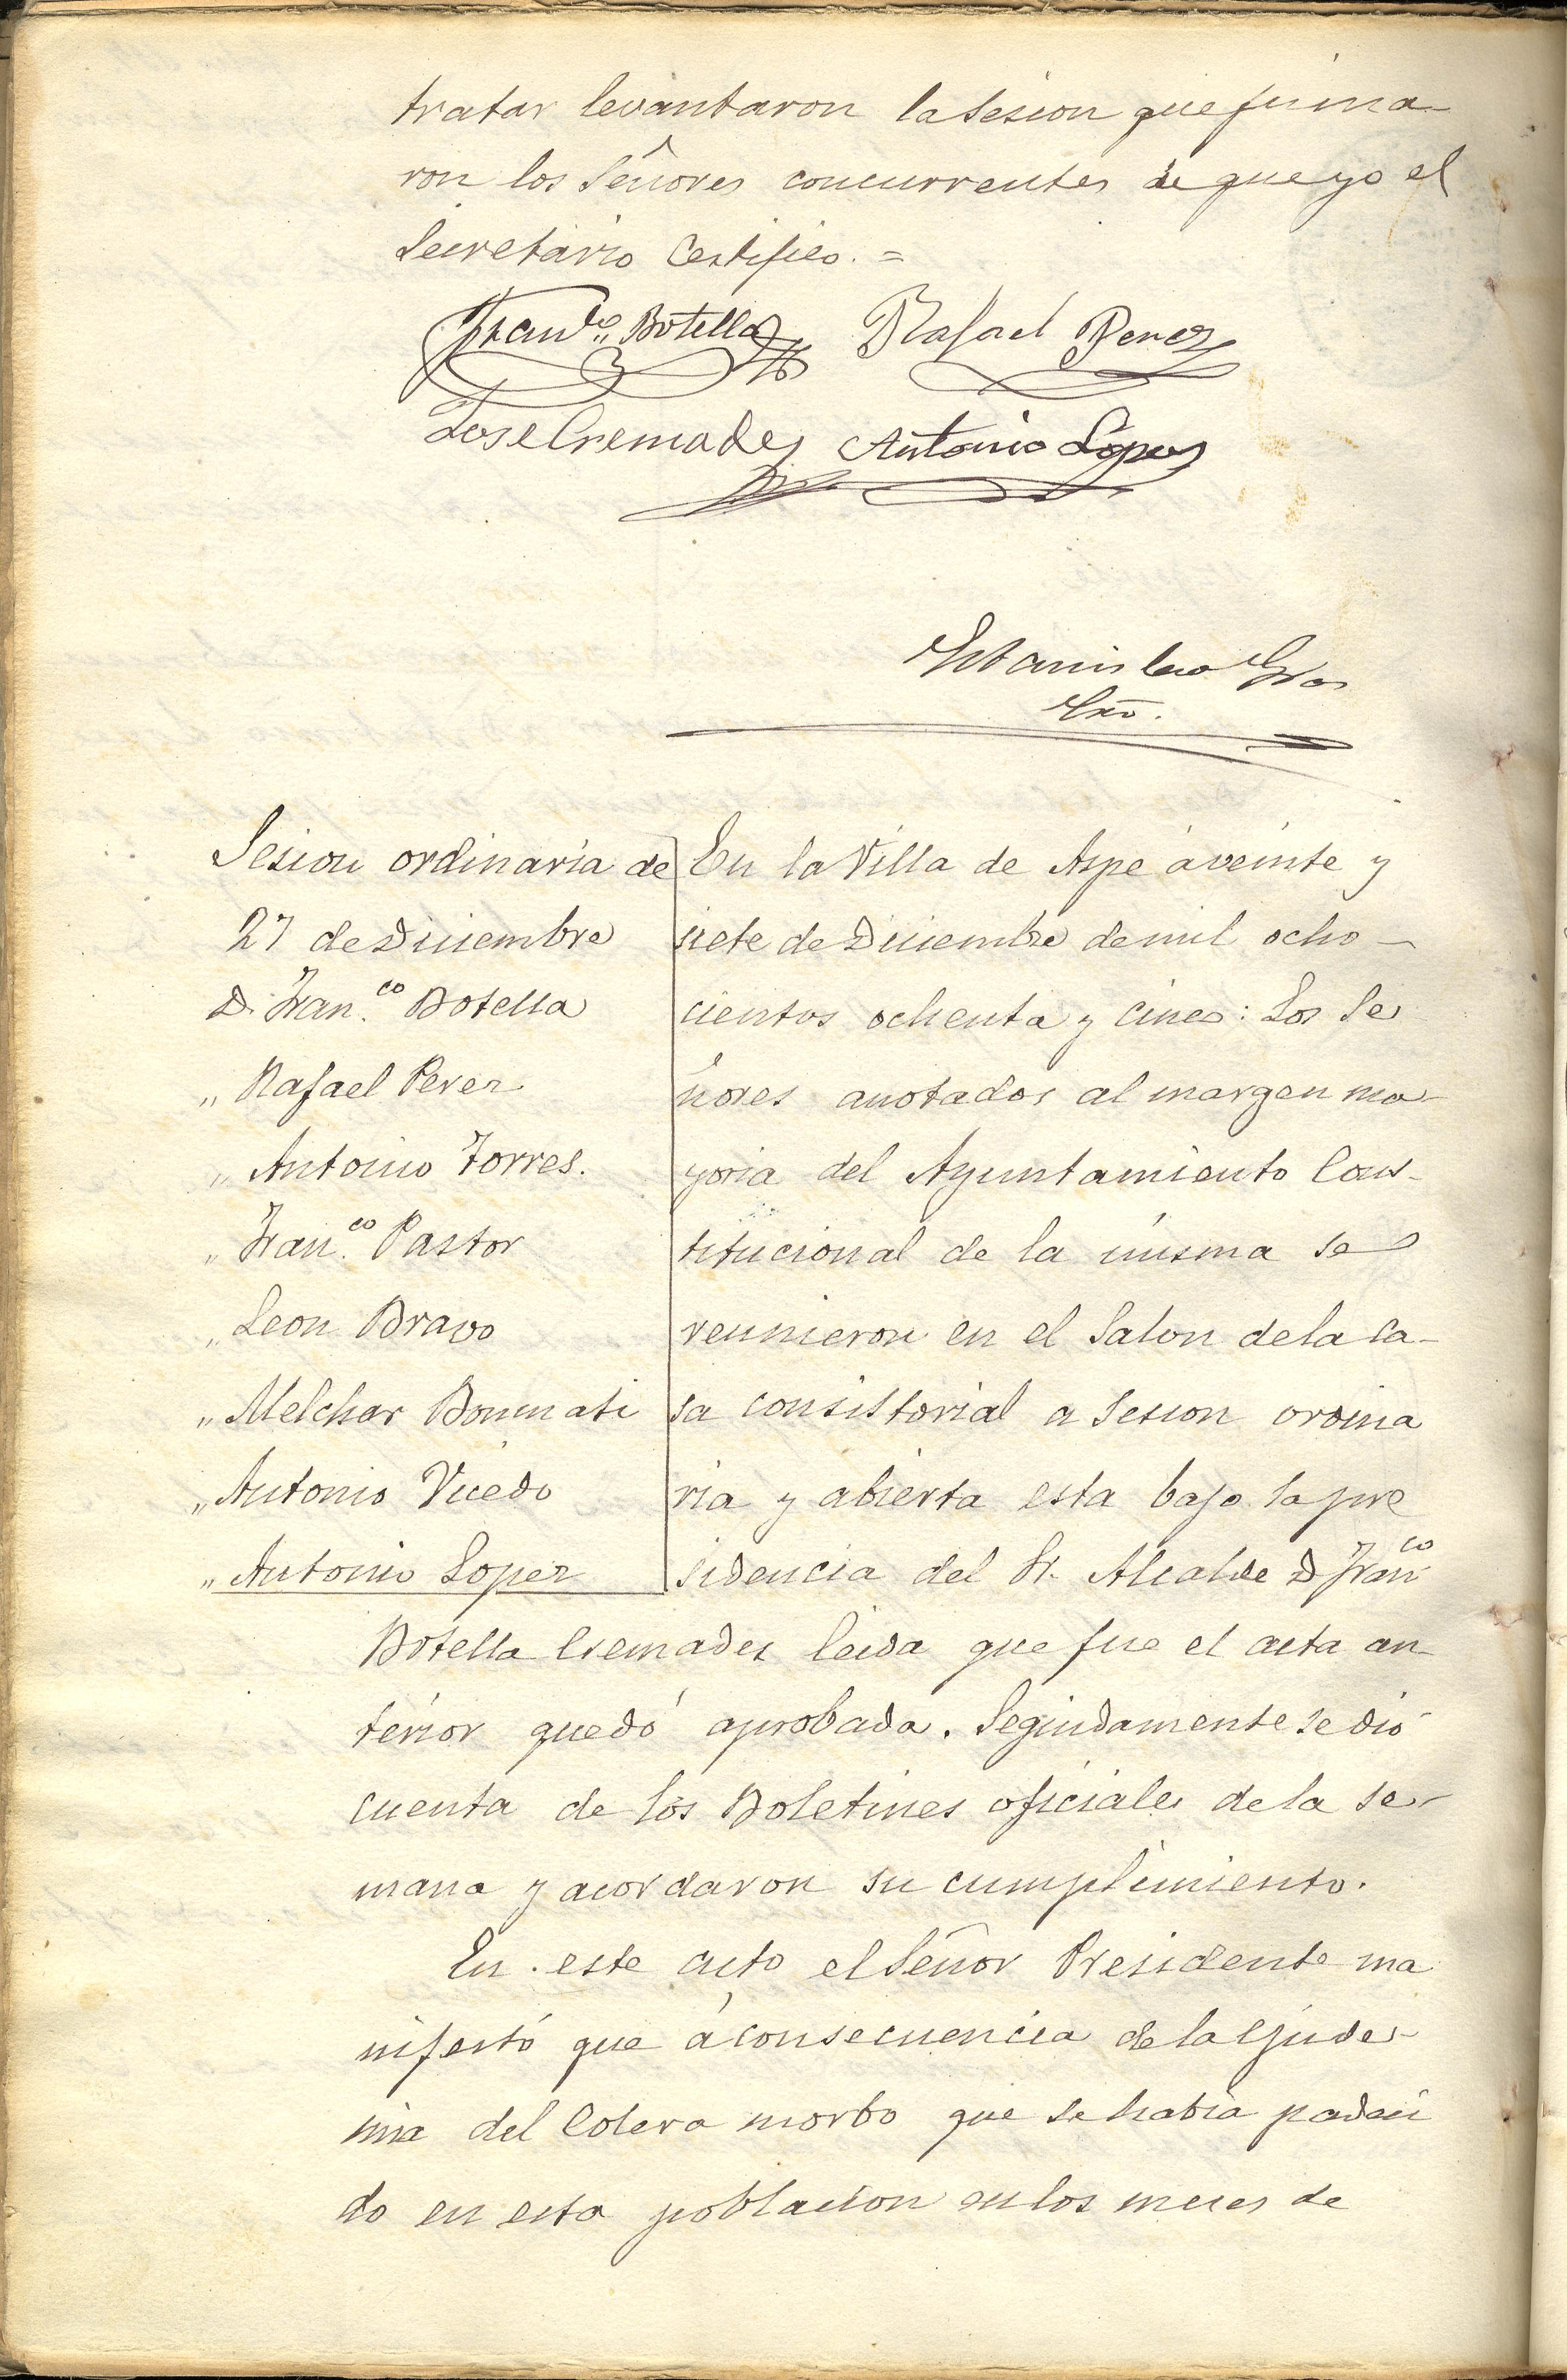 tratar levantaron la Sesion que firma-
ron los Señores concurrentes de que yo el
Secretário Certifico. =
Fran.co Botella Rafael Perez
Jose Cremades Antonio Lopez
Estanislao
Srio.
Sesion ordinaria de
27 de Diciembre
D. Fran.co Botella
" Rafael Perez
" Antonio Torres.
" Fran.co Pastor
" Leon Bravo
" Melchor Bonmati
" Antonio Vicedo
" Antonio Lopez
En la Villa de Aspe á veinte y
siete de Diciembre de mil ocho-
cientos ochenta y cinco: Los Se
ñores anotados al margen ma-
yoria del Ayuntamiento Cons-
titucional de la misma se
reunieron en el Salon de la Ca-
sa consistorial a Sesion ordina
ria y abierta esta bajo la pre
sidencia del Sr. Alcalde D Fran.co
Botella Cremades leida que fue el acta an-
terior quedó aprobada. Seguidamente se dió
cuenta de los Boletines oficiales de la se-
mana y acordaron su cumplimiento.
En este acto el Señor Presidente ma
nifestó que á consecuencia de la epide-
mia del Colera morbo que se habia padeci
do en esta poblacion en los meses de